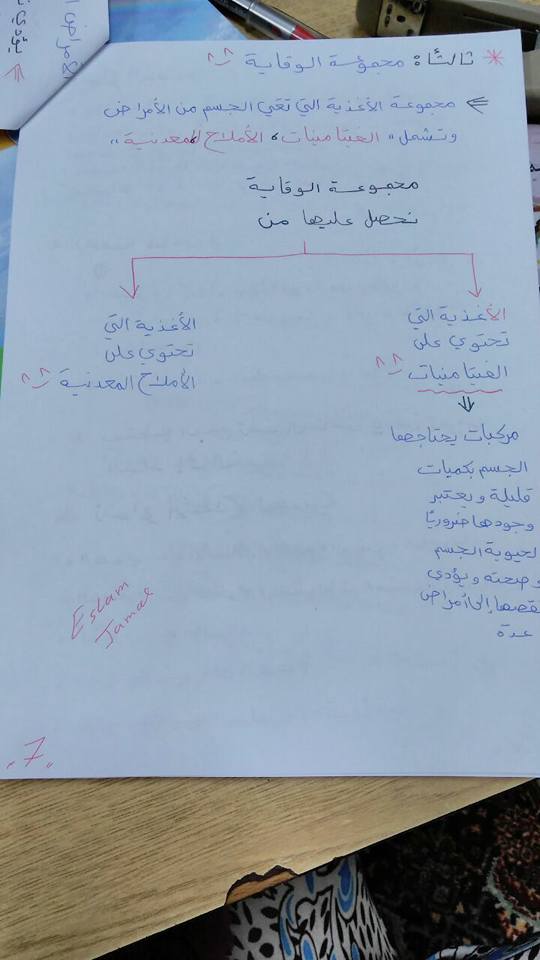 * ثالثًا: مجموعة الوقاية ^_^
مجموعة الأغذية التي تقي الجسم من الأمراض
وتشمل " الفيتامينات، الأملاح المعدنية "
مجموعة الوقاية
نحصل عليها من
الأغذية التي
تحتوي على
الفيتامينات ^_^
مركبات يحتاجها
الجسم بكميات
قليلة ويعتبر
وجودها ضروريًا
لحيوية الجسم
وصحته ويؤدي
نقصها إلى أمراض
عدة
الأغذية التي
تحتوي على
الأملاح المعدنية ^_^
Eslam
Jamal
"7"